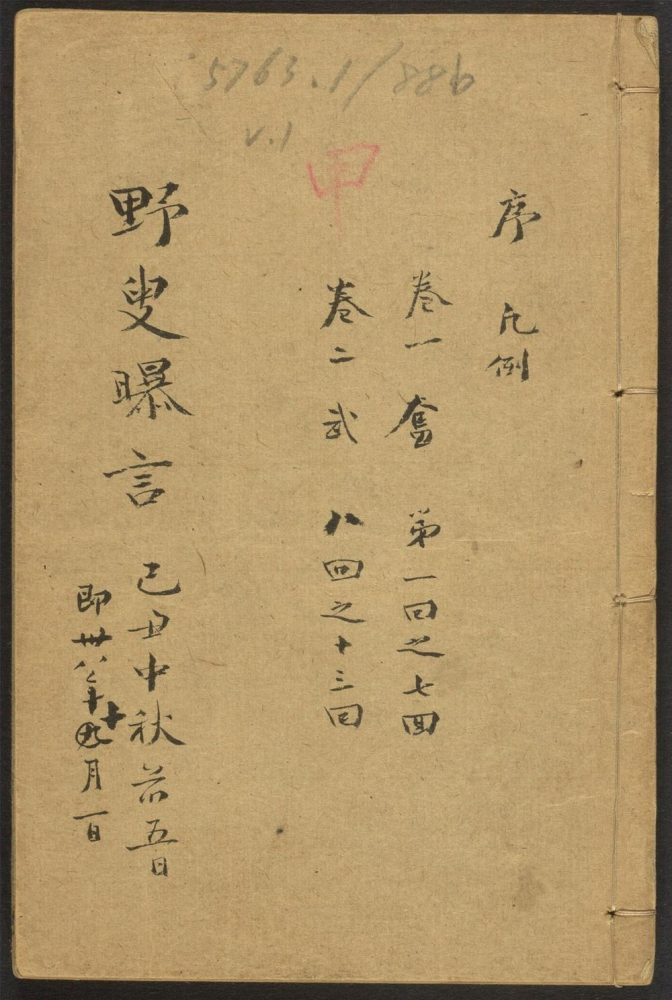 5763.1/886
v.1
甲
序 凡例
卷一 奮 第一回之七回
卷二 武 八回之十三回
野叟曝言 己丑中秋前五日
即卅八年十月一日